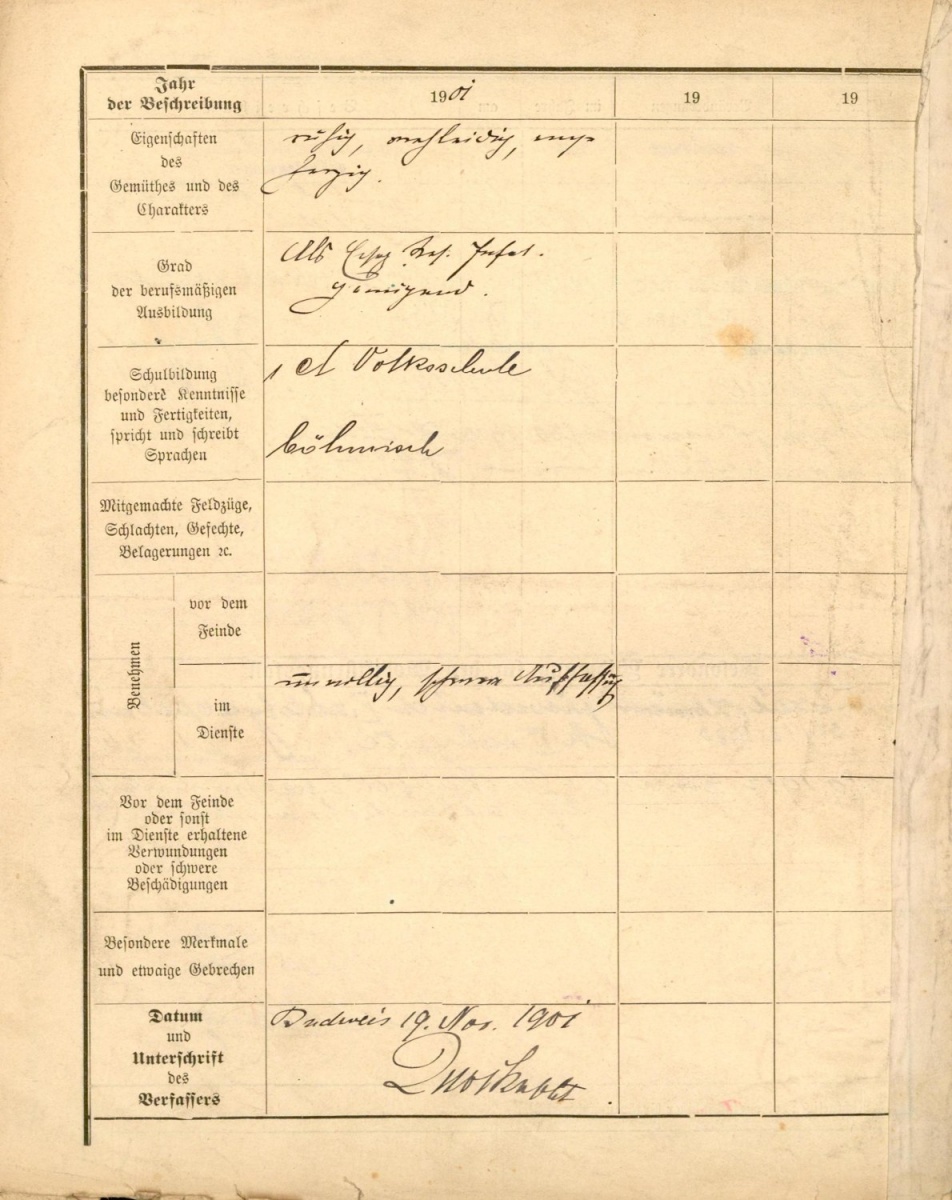 Jahr
der Beschreibung
1901
19
19
Eigenschaften
des
Gemüthes und des
Charakters
ruhig,
herzig.
Grad
der berufsmäßigen
Ausbildung
Als Ers. Res. Inft.
genügend.
Schulbildung
besondere Kenntnisse
und Fertigkeiten,
spricht und schreibt
Sprachen
Volksschule
böhmisch
Mitgemachte Feldzüge,
Schlachten, Gefechte,
Belagerungen ꝛc.
Benehmen
vor dem
Feinde
im
Dienste
willig, schwere Auffassg
Vor dem Feinde
oder sonst
im Dienste erhaltene
Verwundungen
oder schwere
Beschädigungen
Besondere Merkmale
und etwaige Gebrechen
Datum
und
Unterschrift
des
Verfassers
Budweis 19. Nov. 1901